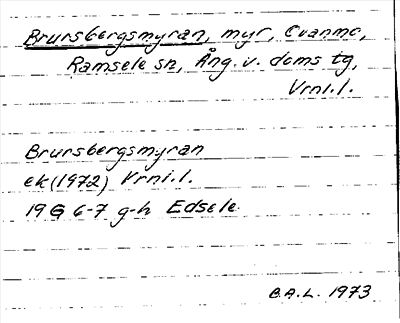 Brursbergsmyran, myr, Ovanmo,
Ramsele sn, Ång. v. doms tg,
Vrnl.l.
Brursbergsmyran
ek (1972) Vrnl.l.
19G 6-7 g-h Edsele
B.A.L. 1973